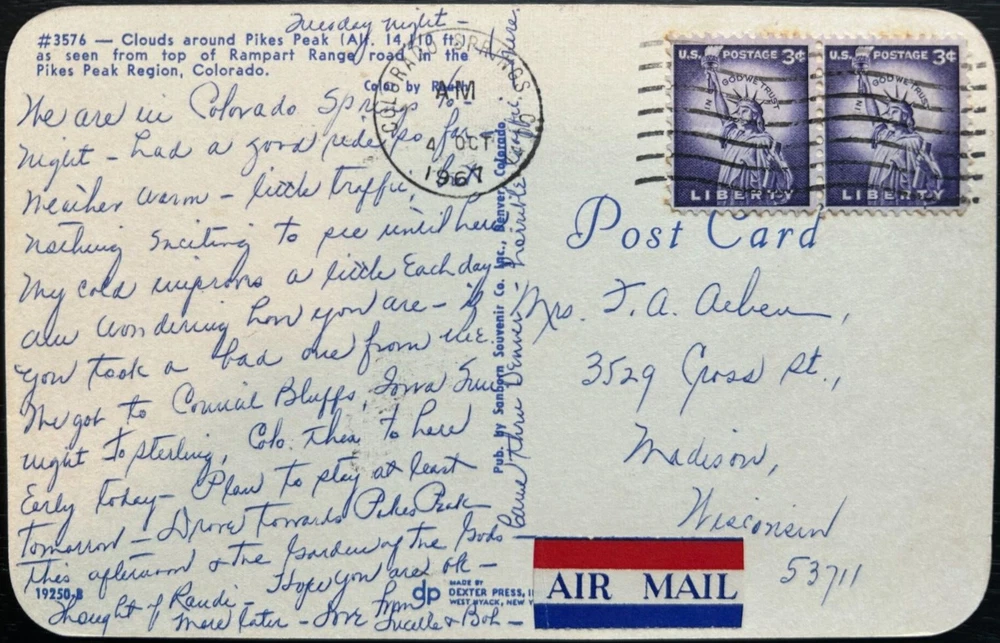 Tuesday night -
#3576 — Clouds around Pikes Peak (Alt. 14,110 ft.)
as seen from top of Rampart Range road in the
Pikes Peak Region, Colorado.
Color by
We are in Colorado Springs to-
night - had a good ride so far -
Weather warm - little traffic, but
nothing exciting to see until here
My cold improves a little each day
am wondering how you are - if
you took a bad one from me.
We got to Council Bluffs, Iowa Sun
night to Sterling, Colo. then to here
Early today - Plan to stay at least
tomorrow - Drove towards Pikes Peak
this afternoon & the Garden of the Gods -
Thought of Randi - Hope you are ok -
More later - Love from
Lucille & Bob -
Came thru Denver - horrible traffic there.
19250-B
dp
MADE BY
DEXTER PRESS, I
WEST NYACK, NEW Y
Pub. by Sanborn Souvenir Co. Inc., Denver, Colorado
COLORADO SPRINGS
AM
4 OCT
1967
U.S. POSTAGE 3¢
IN GOD WE TRUST
LIBERTY
U.S. POSTAGE 3¢
IN GOD WE TRUST
LIBERTY
Post Card
Mrs. F. A.
3529 Gross St.,
Madison,
Wisconsin
53711
AIR MAIL